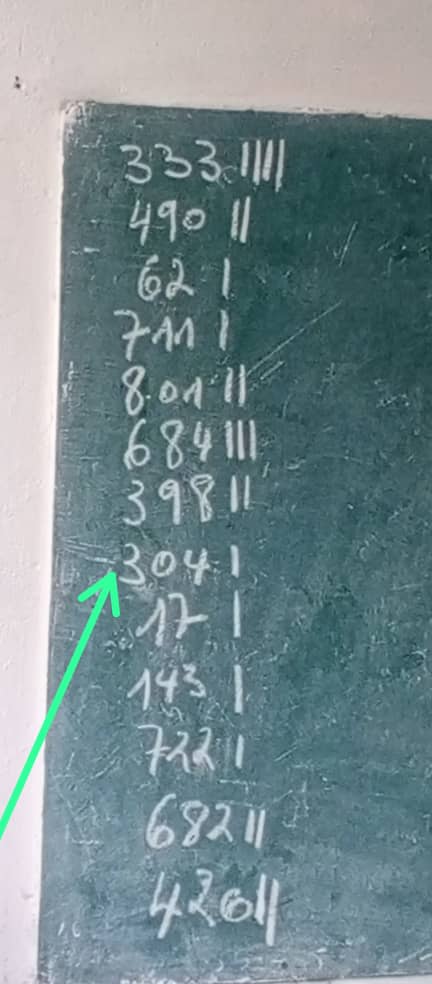 333 ||||
490 ||
62 |
711 |
801 ||
684 |||
398 ||
304 |
17 |
143 |
722 |
682 ||
420 ||